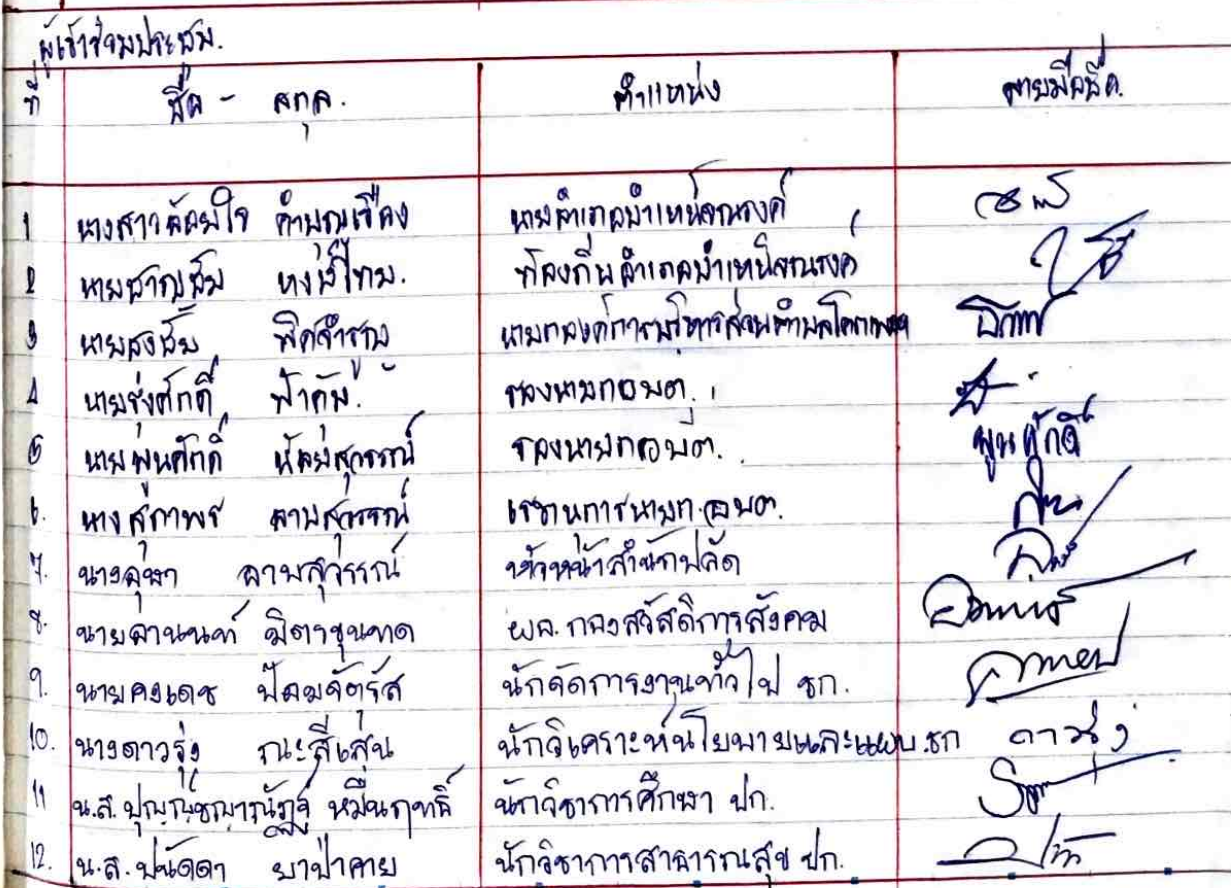 ผู้เข้าร่วมประชุม.
ที่ ชื่อ - สกุล. ตำแหน่ง ลายมือชื่อ.
1 นางสาวล้อมใจ คำบุญเรือง นายอำเภอบำเหน็จณรงค์
2 นายชาญชัย ท้องถิ่นอำเภอบำเหน็จณรงค์
3 นายธงชัย นายกองค์การบริหารส่วนตำบลโคกเพชร
4 นายรุ่งศักดิ์ ฟ้าคุ้ม. รองนายกอบต.
5 นายพูนศักดิ์ น้อยสุวรรณ์ รองนายกอบต. พูนศักดิ์
6. นางสุภาพร ลาบสุวรรณ์ เลขานุการนายก.อบต.
7. นางอุษา ลาบสุวรรณ์ หัวหน้าสำนักปลัด
8. นายอานนท์ มิตาขุนทด ผอ.กองสวัสดิการสังคม
9. นายคงเดช ป้อมจัตุรัส นักจัดการงานทั่วไป ชก.
10. นางดาวรุ่ง ณะสีแสุ่น นักวิเคราะห์นโยบายและแผน.ชก ดาวรุ่ง
11 น.ส. หมื่นฤทธิ์ นักวิชาการศึกษา ปก.
12. น.ส.ปนัดดา ยาป่าคาย นักวิชาการสาธารณสุข ปก.